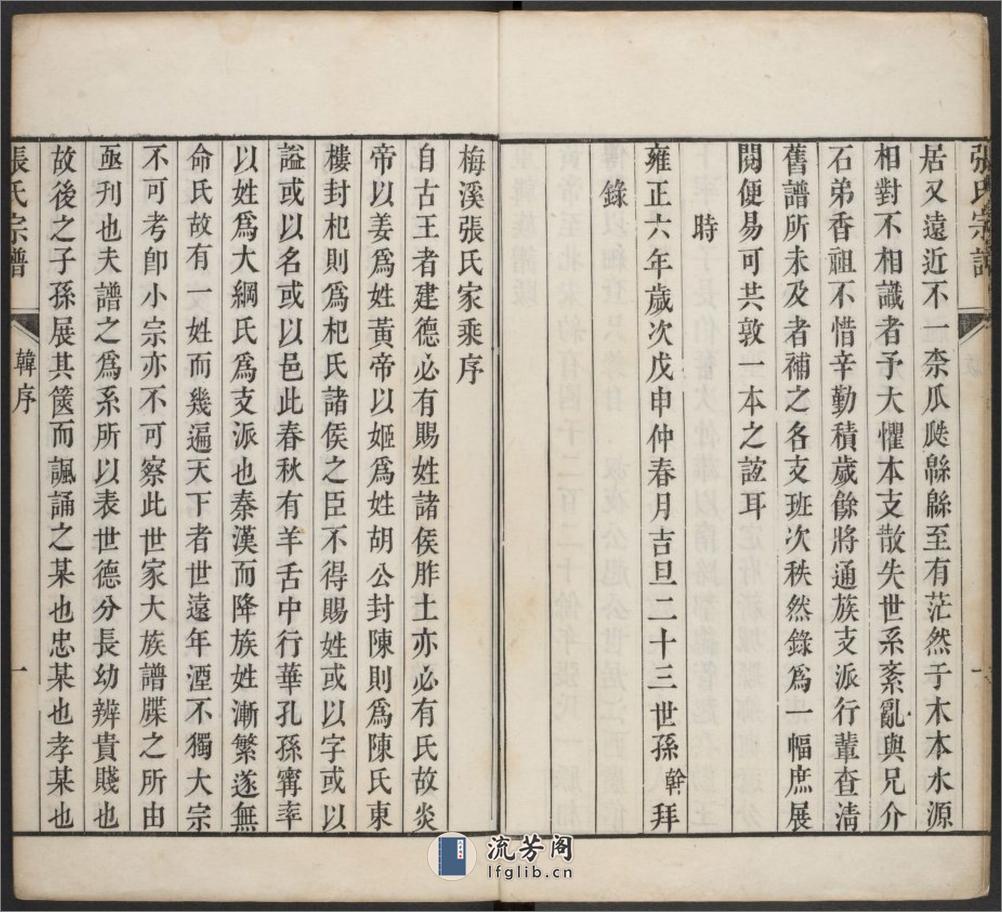 張氏宗譜
居又遠近不一柰瓜瓞緜緜至有茫然于木本水源
相對不相識者予大懼本支散失世系紊亂與兄介
石弟香祖不惜辛勤積歲餘將通族支派行輩查清
舊譜所未及者補之名支班次秩然錄爲一幅庶展
閱便易可共敦一本之誼耳
時
雍正六年歲次戊申仲春月吉旦二十三世孫幹拜
錄
梅溪張氏家乘序
自古王者建德必有賜姓諸侯胙土亦必有氏故炎
帝以姜爲姓黃帝以姬爲姓胡公封陳則爲陳氏東
樓封杞則爲杞氏諸侯之臣不得賜姓或以字或以
謚或以名或以邑此春秋有羊舌中行華孔孫甯率
以姓爲大綱氏爲支派也秦漢而降族姓漸繁遂無
命氏故有一姓而幾遍天下者世遠年湮不獨大宗
不可考卽小宗亦不可察此世家大族譜牒之所由
亟刊也夫譜之爲系所以表世德分長幼辨貴賤也
故後之子孫展其篋而諷誦之某也忠某也孝某也
張氏宗譜
韓序
一
流芳阁
lfglib.cn